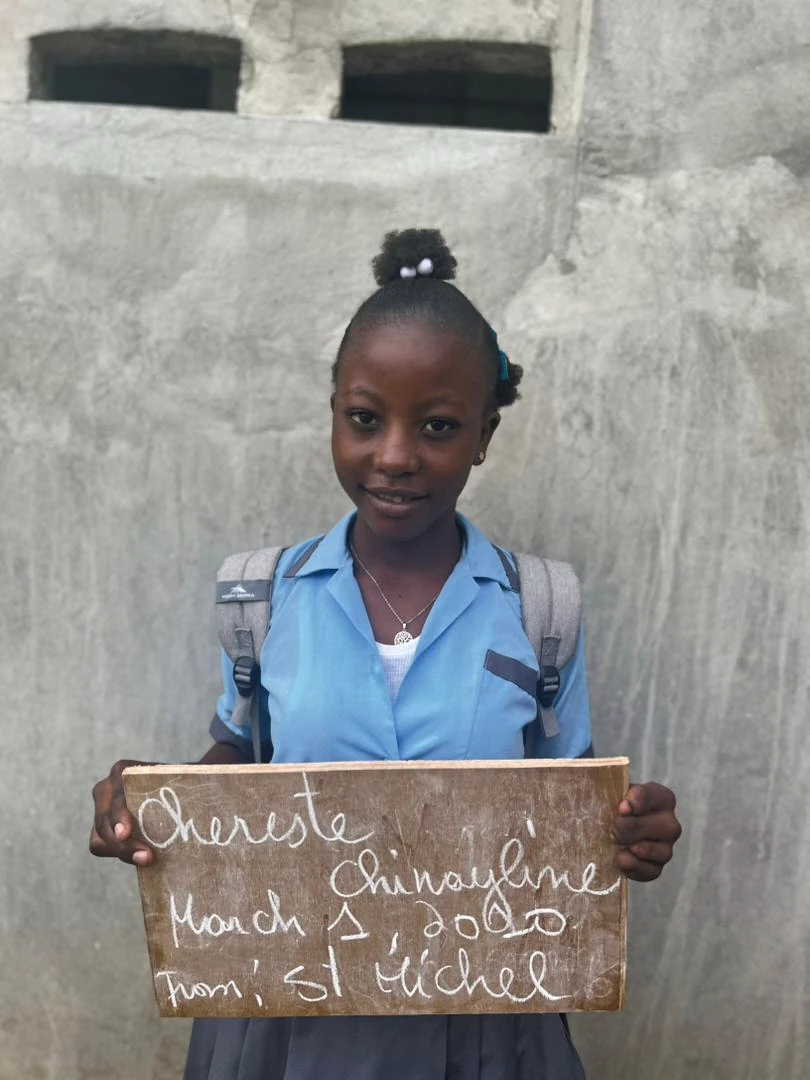 Chereste
Chinayline
March 1, 2010
From: St Michel
HIGH SIERRA